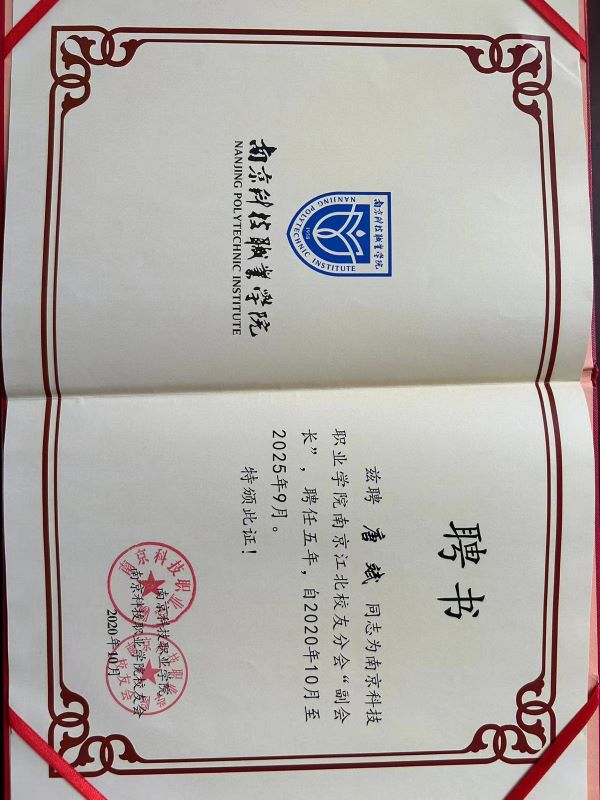 南京科技职业学院
NANJING POLYTECHNIC INSTITUTE
1958
南京科技職業学院
NANJING POLYTECHNIC INSTITUTE
聘书
兹聘 唐斌 同志为南京科技
职业学院南京江北校友分会“副会
长”，聘任五年，自2020年10月至
2025年9月。
特颁此证！
南京科技职业学院
南京科技职业学院校友会
2020年10月